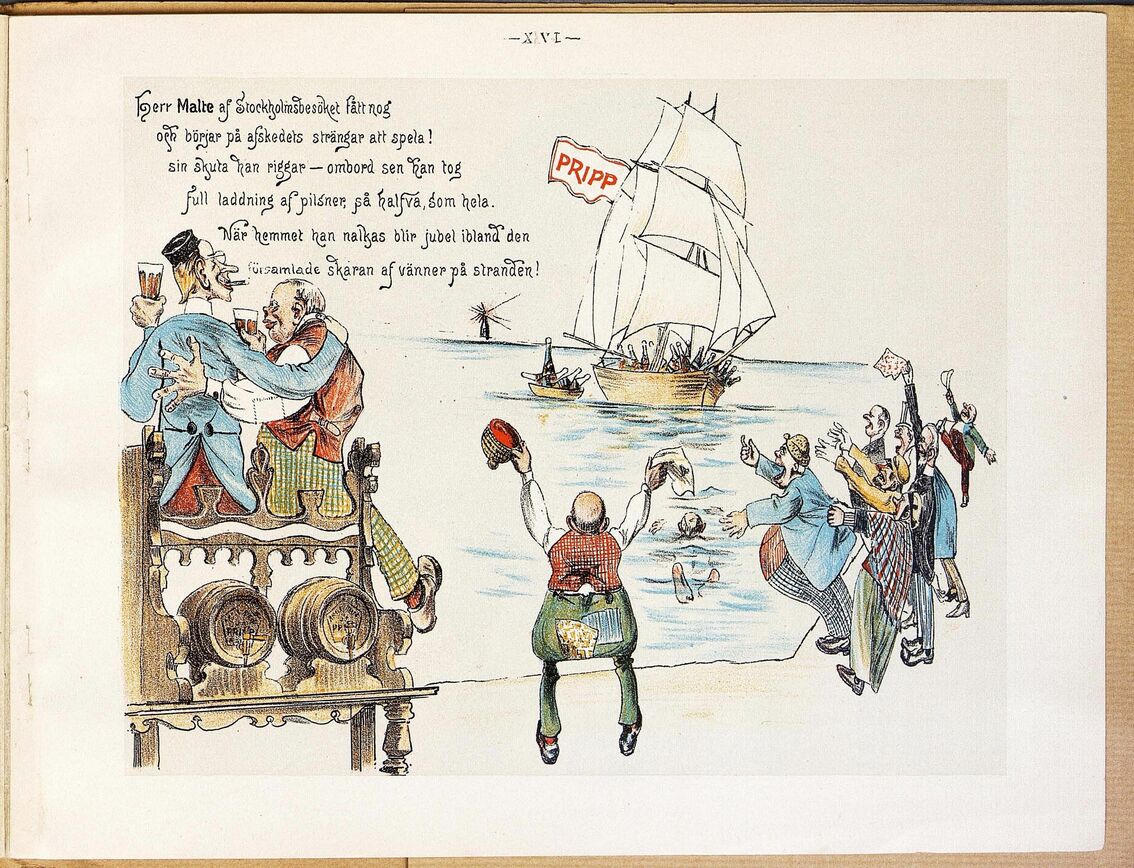 —XVI—
Herr Malte af Stockholmsbesöket fått nog
och börjar på afskedets strängar att spela!
sin skuta han riggar — ombord sen han tog
full laddning af pilsner, på halfva, som hela.
När hemmet han nalkas blir jubel ibland den
församlade skaran af vänner på stranden!
PRIPP
PRIPP
PRIPP